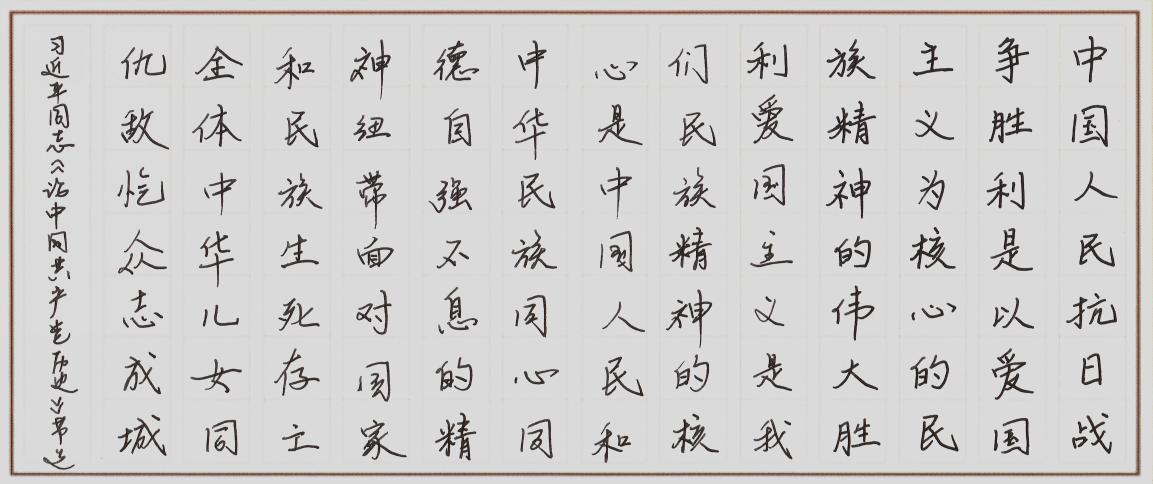 中国人民抗日战
争胜利是以爱国
主义为核心的民
族精神的伟大胜
利爱国主义是我
们民族精神的核
心是中国人民和
中华民族同心同
德自强不息的精
神纽带面对国家
和民族生死存亡
全体中华儿女同
仇敌忾众志成城
习近平同志《论中国共产党历史》